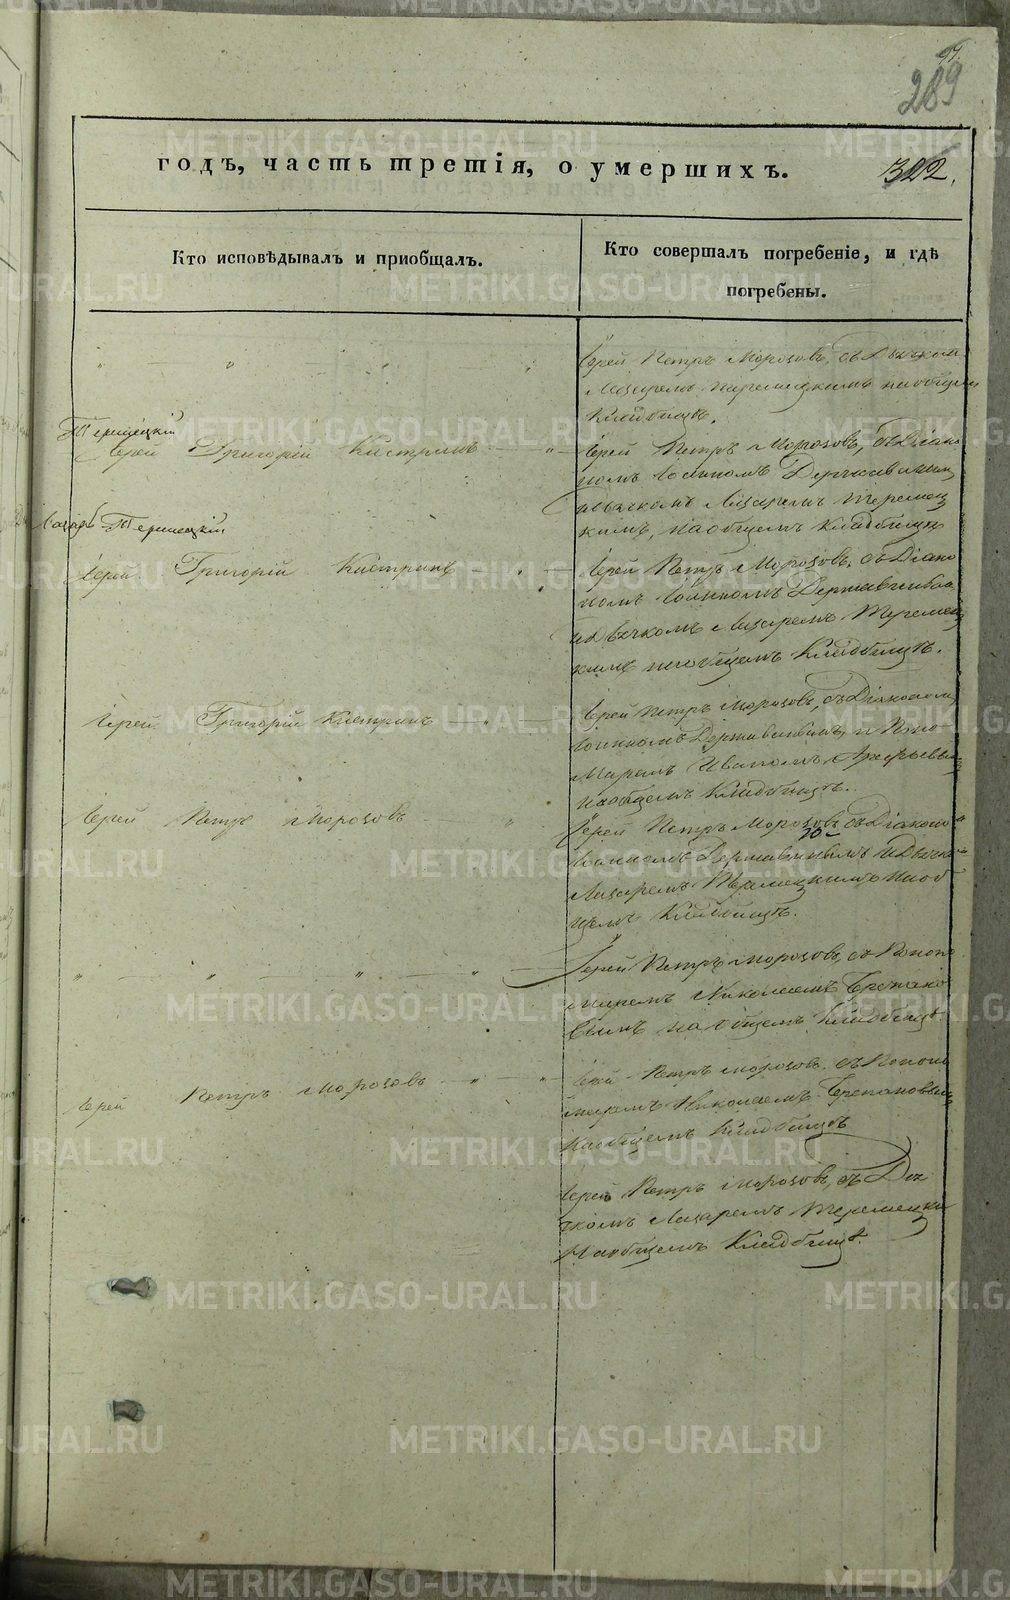 289
322.
годъ, часть третія, о умершихъ.
Кто исповѣдывалъ и приобщалъ.
Кто совершалъ погребеніе, и гдѣ
погребены.
" " " "
Іерей Петръ Морозовъ, съ Дьячкомъ
Лазаремъ на общемъ
Кладбищѣ.
Іерей Григорій Кистринъ "
Іерей Петръ Морозовъ, съ Діако
номъ Іоанномъ Державиным
и дьячкомъ Лазаремъ
кимъ, на общемъ кладбищѣ
Лазарь
Іерей Григорій Кистринъ "
Іерей Петръ Морозовъ, съ Діако
номъ Іоанномъ
и Дьячкомъ Лазаремъ
кимъ на общемъ Кладбищѣ.
Іерей Григорій Кистринъ " "
Іерей Петръ Морозовъ, съ Діакономъ
Іоанномъ Державинымъ и Поно
маремъ Иваномъ
на общемъ Кладбищѣ.
Іерей Петръ Морозовъ "
Іерей Петръ Морозовъ съ Діаконо
Іоанномъ Державинымъ и Дьячк
Лазаремъ на об
щемъ Кладбищѣ.
" " " "
Іерей Петръ Морозовъ, съ Поно
маремъ Николаемъ
вымъ на общемъ Кладбищѣ.
Іерей Петръ Морозовъ " "
Іерей Петръ Морозовъ съ Поно
маремъ Николаемъ
на общемъ Кладбищѣ
Іерей Петръ Морозовъ, съ Дья
чкомъ Лазаремъ
На общемъ Кладбищѣ.
METRIKI.GASO-URAL.RU